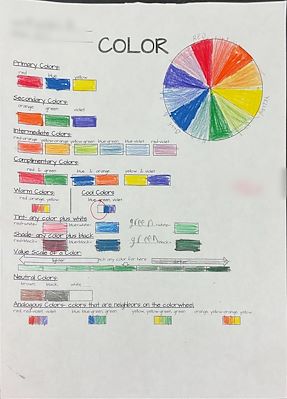 COLOR
RED
Primary Colors:
red blue yellow
Secondary Colors:
orange green violet
Intermediate Colors:
red-orange yellow-orange yellow-green blue-green blue-violet red-violet
Complimentary Colors:
red & green blue & orange yellow & violet
Warm Colors Cool Colors
red, orange, yellow blue, green, violet
Tint- any color plus white
red+white= blue+white= green +white=
Shade- any color plus black
red+black= blue+black= green +black=
Value Scale of a Color
lighter pick any color for here darker
Neutral Colors:
brown black white
Analogous Colors- colors that are neighbors on the colorwheel
red, red-violet, violet blue, blue-green, green yellow, yellow-green, green orange, yellow-orange, yellow